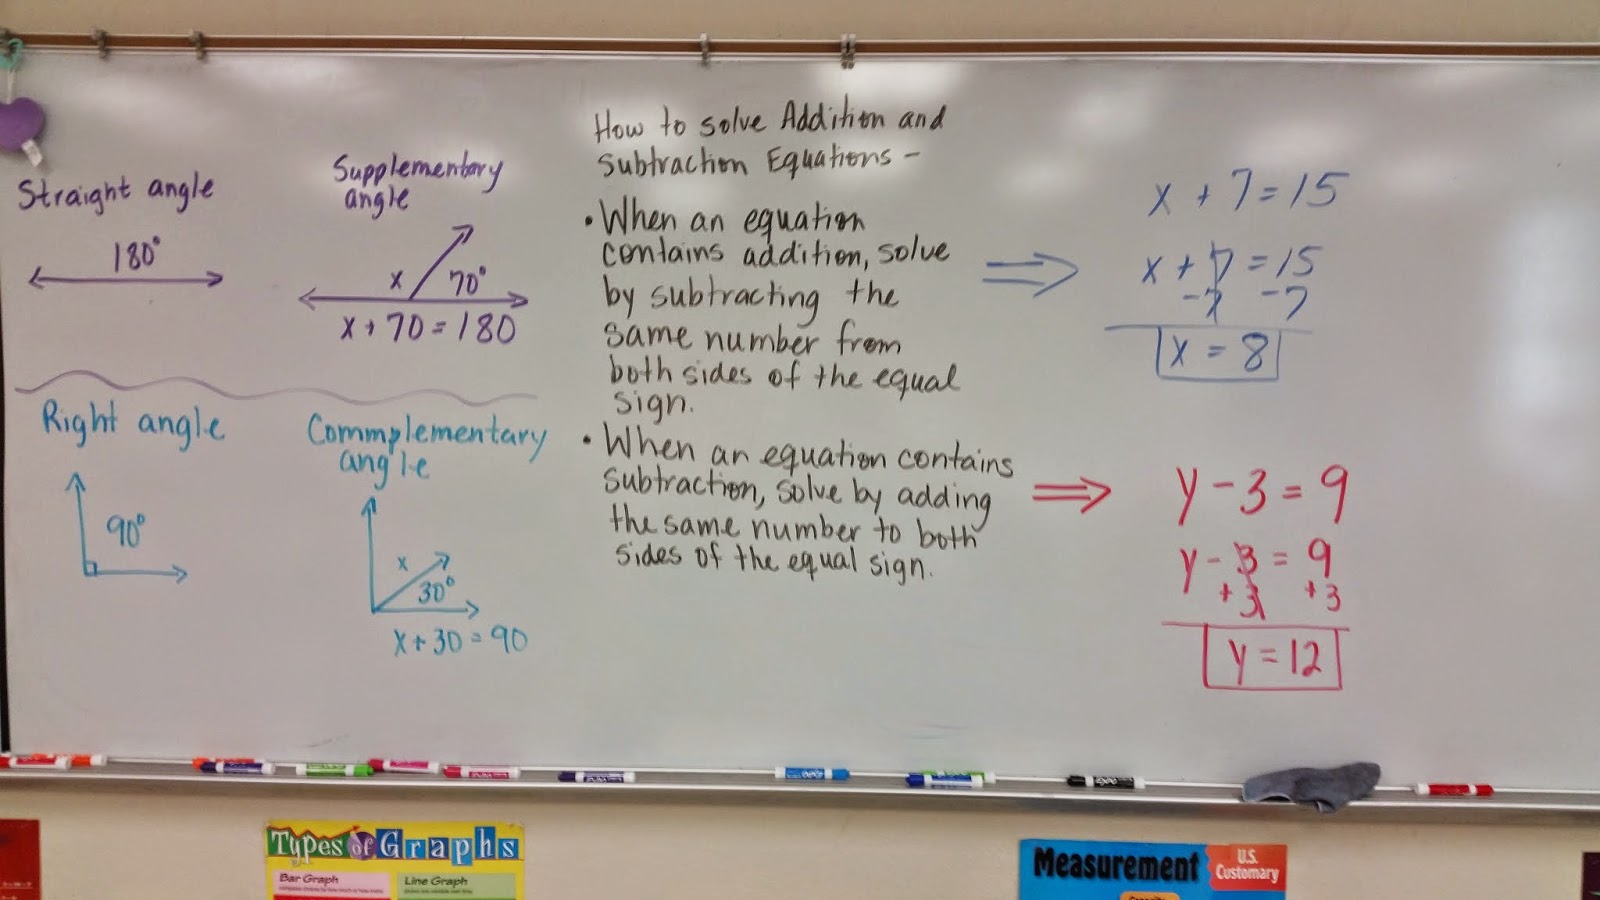 Straight angle
180°
Supplementary
angle
x
70°
x + 70 = 180
Right angle
90°
Commplementary
angle
x
30°
x + 30 = 90
How to solve Addition and
Subtraction Equations -
• When an equation
contains addition, solve
by subtracting the
same number from
both sides of the equal
sign.
• When an equation contains
subtraction, solve by adding
the same number to both
sides of the equal sign.
x + 7 = 15
x + 7 = 15
-7 -7
x = 8
y - 3 = 9
y - 3 = 9
+3 +3
y = 12
EXPO
Types of Graphs
Bar Graph
Line Graph
Measurement
U.S.
Customary